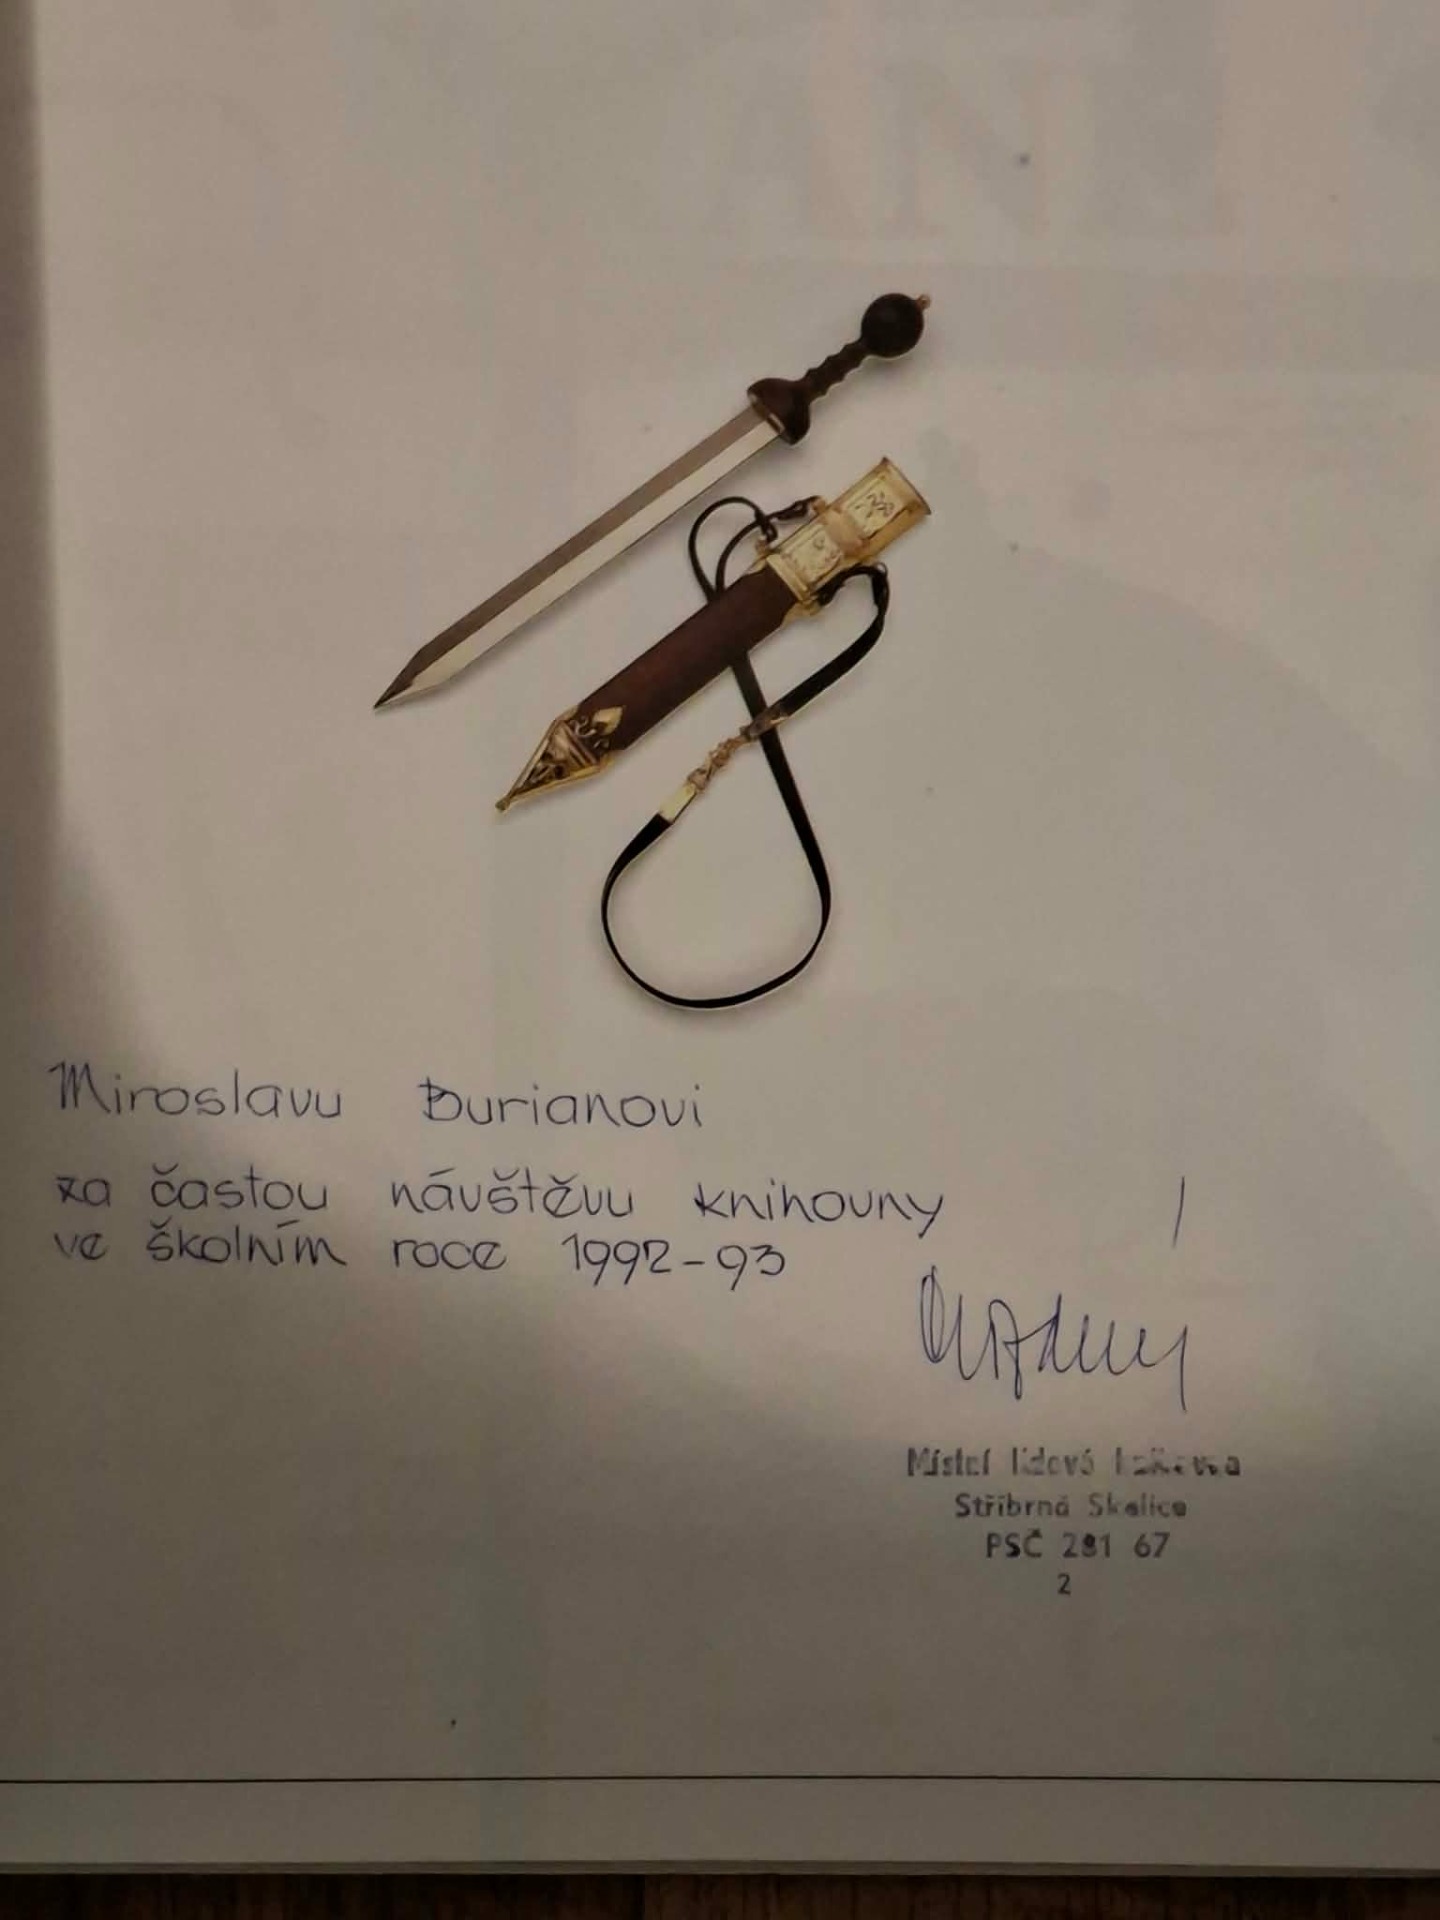 Miroslavu Burianovi
za častou návštěvu knihovny
ve školním roce 1992-93
Místní lidová knihovna
Stříbrná Skalice
PSČ 281 67
2